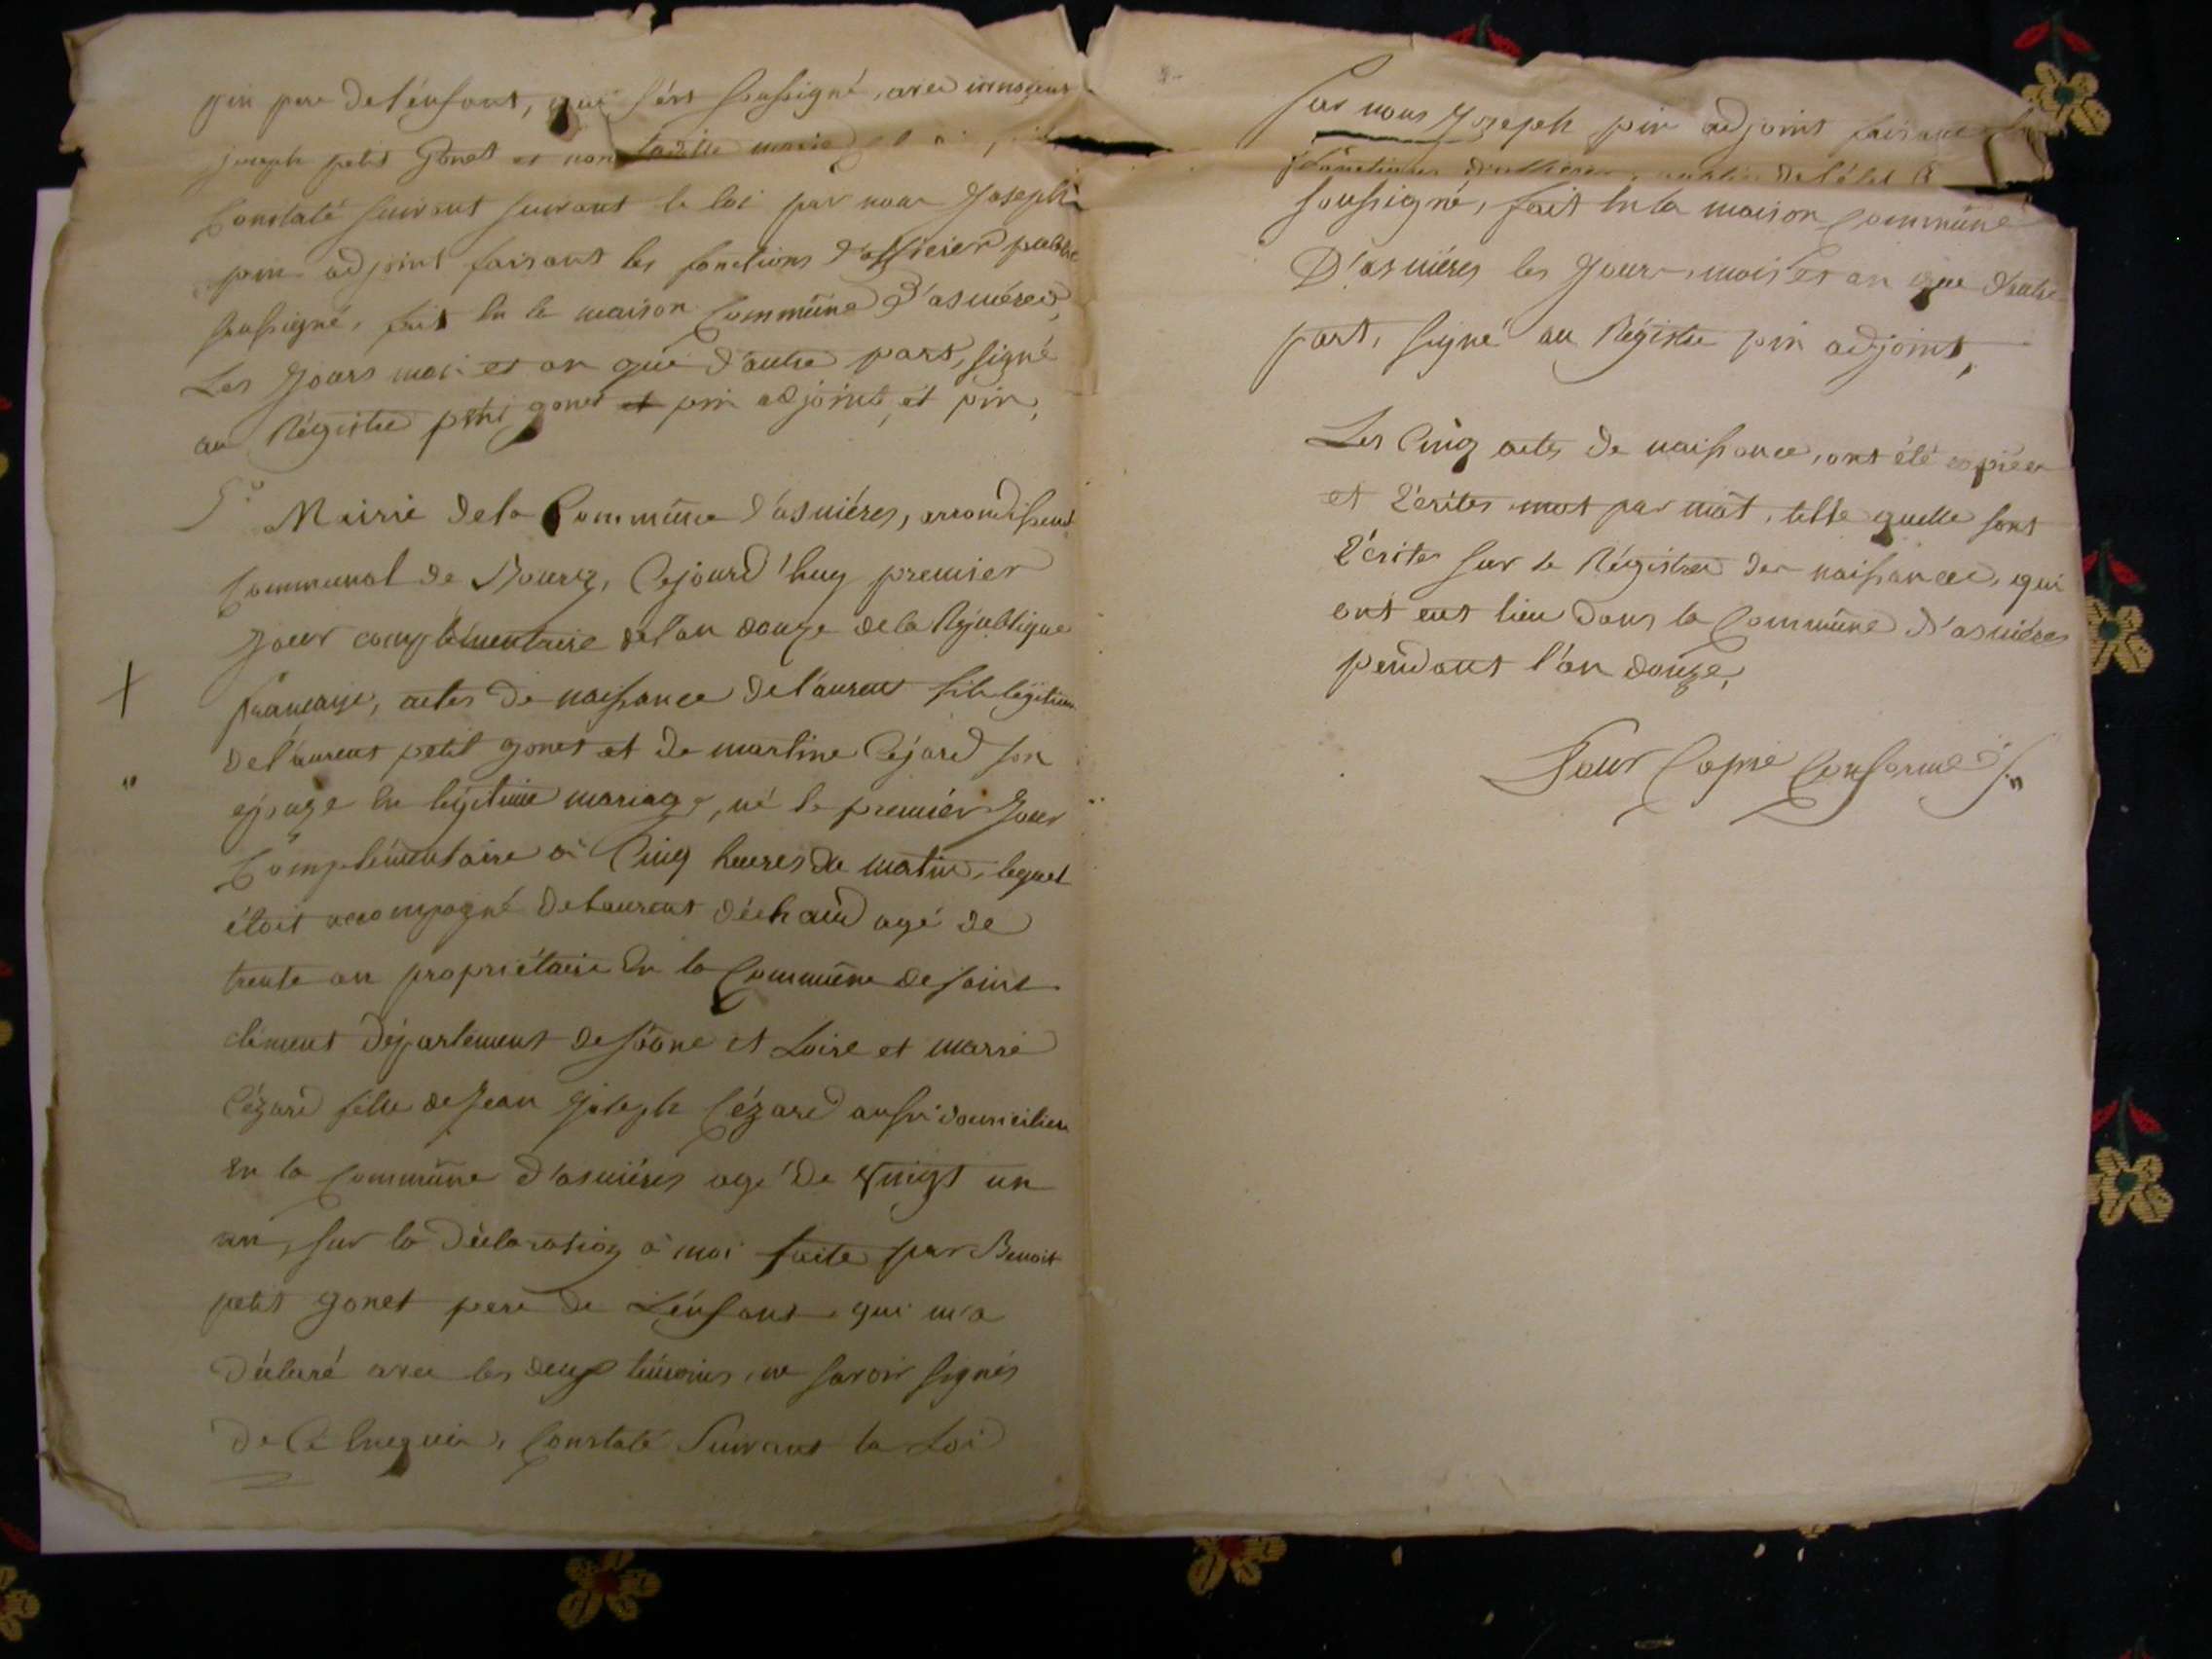 pin pere de l'énfant, qui s'ést soussigné, avec innoçent
joseph petit Gonet et non laditte marie
Constaté suivant suivant la loi par nous Joseph
pin adjoint faisant les fonctions d'officier public
soussigné, fait En la maison Commûne d'asniéres,
Les Jours mois et an que d'autre part, signé
au Régistre petit gonet et pin adjoint, et pin,
5.° Mairie de la Commûne d'asniéres, arrondissemt
Communal de Bourg, Cejourd'huy premier
Jour complémentaire de l'an douze de la République
française, actes de naissance de laurent fils légitime
de laurent petit gonet et de martine Cézard son
épouze En légitime mariage, né le premiér Jour
Complémentaire à Cinq heures du matin, lequel
étoit accompagné de laurent déchaud agé de
trente an propriétaire En la Commûne de saint
clément Département de sâone et Loire et marie
Cézard fille de Jean Joseph Cézard aussi domicilien
En la Commûne d'asniéres agé de Vingt un
an, sur la déclaration à moi faite par Benoit
petit gonet pere de L'énfant qui m'a
déclaré avec les deux témoins, ne savoir signés
de Ce Enequis, Constaté Suivant la Loi
par nous Joseph pin adjoint faisant les
fonctions d'officier public de l'état C
soussigné, fait En la maison Commûne
D'asniéres les Jours, mois et an que d'autre
part, signé au Régistre pin adjoint,
Les Cinq actes de naissance, ont été copiées
et Écrites mot par mot, telle quelle sont
Écrites sur le Régistre des naissances, qui
ont eut lieu dans la Commûne d'asniéres
pendant l'an douze,
Pour Copie Conforme